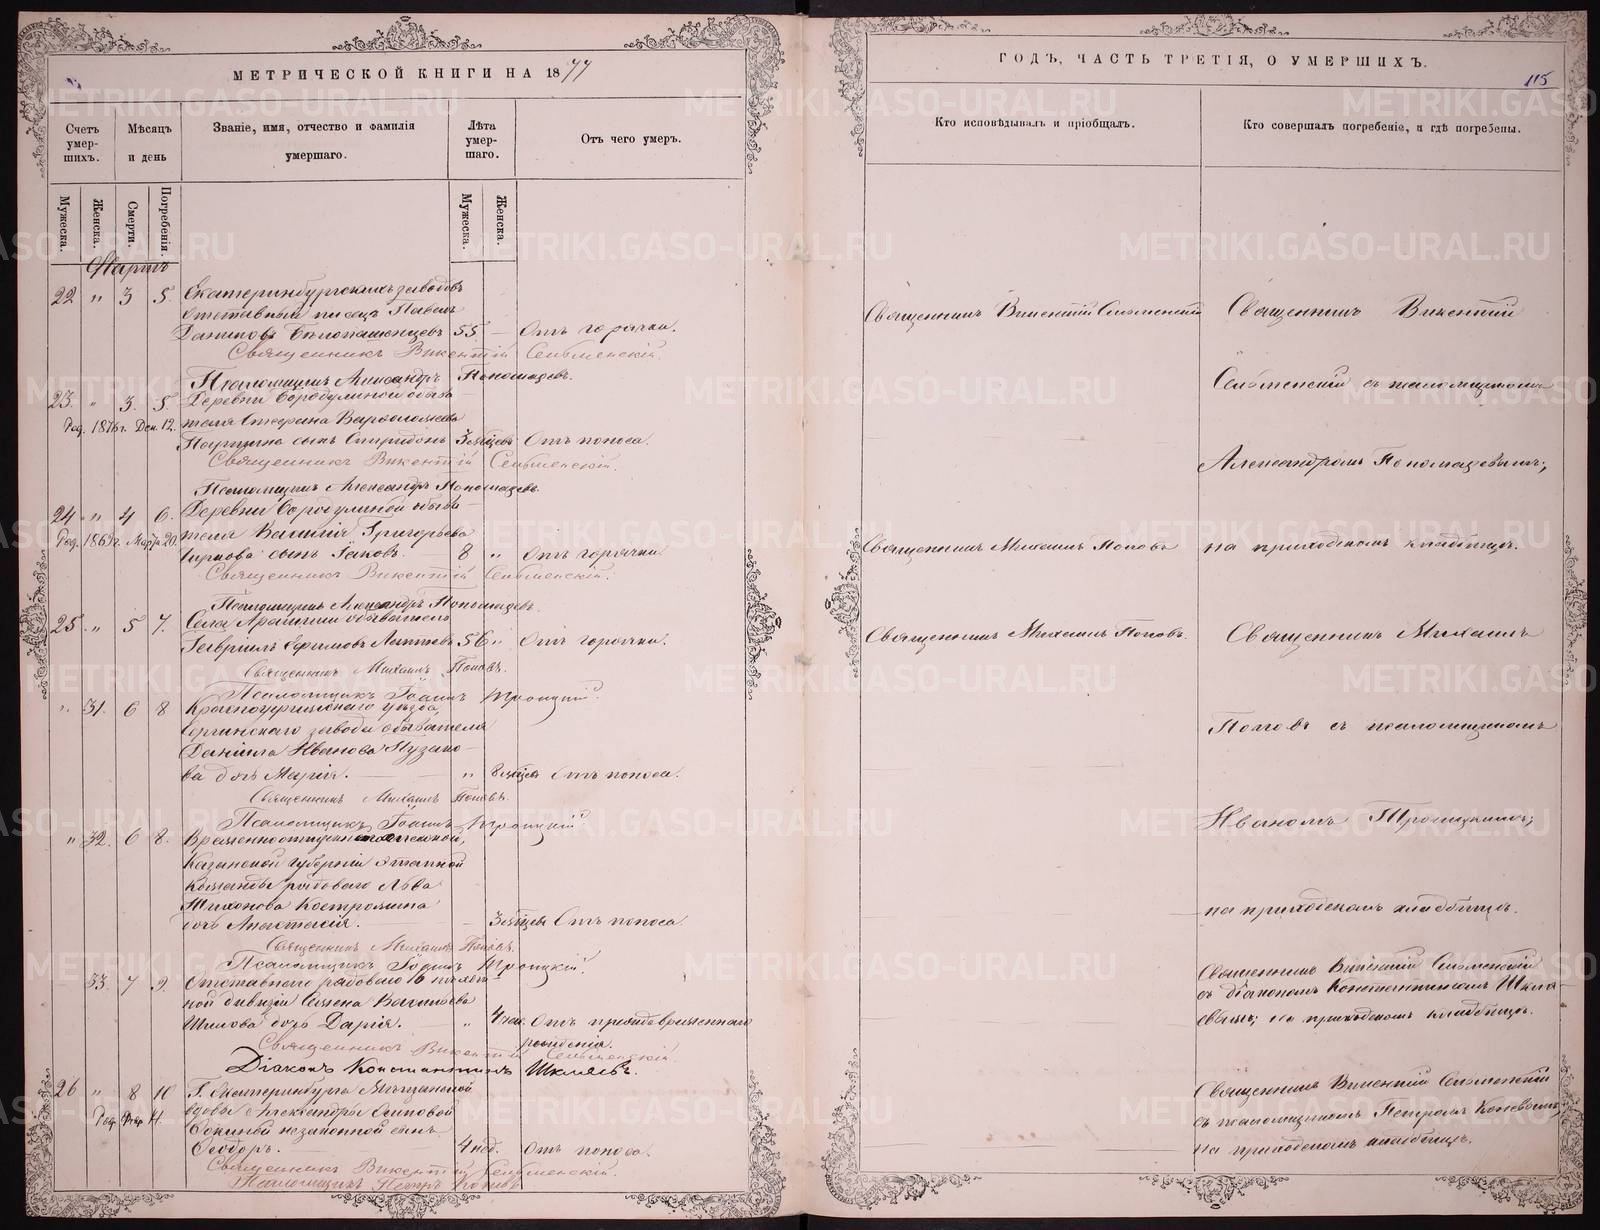 МЕТРИЧЕСКОЙ КНИГИ НА 1877
ГОДЪ, ЧАСТЬ ТРЕТІЯ, О УМЕРШИХЪ.
115
Счетъ умер-шихъ.
Мѣсяцъ и день
Званіе, имя, отчество и фамилія умершаго.
Лѣта умер-шаго.
Отъ чего умеръ.
Кто исповѣдывалъ и пріобщалъ.
Кто совершалъ погребеніе, и гдѣ погребены.
Мужеска.
Женска.
Смерти.
Погребенія.
Мужеска.
Женска.
Мартъ
22 " 3 5. Екатеринбургскихъ заводовъ
отставный писецъ Павелъ
Даниловъ Бѣлопашенцевъ 55 — Отъ горячки.
Священникъ Викентій Сельменскій.
Псаломщикъ Александръ Пономаревъ.
Священникъ Викентій Сельменскій
Священникъ Викентій
Сельменскій съ псаломщикомъ
23. " 3. 5. Деревни Бородулиной обыва-
Род. 1876 г. Дек. 12. теля Стефана Варфоломеева
сынъ Спиридонъ 3 мѣсцевъ Отъ поноса.
Священникъ Викентій Сельменскій.
Псаломщикъ Александръ Пономаревъ.
Александромъ Пономаревымъ;
24 " 4 6. Деревни Бородулиной обыва-
Род. 1869 г. Мар. 20. теля Василія Григорьева
сынъ Іаковъ. — 8 " Отъ горячки.
Священникъ Викентій Сельменскій.
Псаломщикъ Александръ Пономаревъ.
Священникъ Михаилъ Поповъ
на приходскомъ кладбищѣ.
25. " 5 7. Села Арамили обыватель
Гавріилъ Ефимовъ 56 " Отъ горячки.
Священникъ Михаилъ Поповъ.
Псаломщикъ Іоаннъ Троицкій.
Священникъ Михаилъ Поповъ.
Священникъ Михаилъ
" 31. 6 8 Красноуфимскаго уѣзда,
Сергинскаго завода обывателя
Даніила Иванова Пузако-
ва дочь Марія. — " 8 мѣсцевъ Отъ поноса.
Священникъ Михаилъ Поповъ.
Псаломщикъ Іоаннъ Троицкій.
Поповъ съ псаломщикомъ
Иваномъ Троицкимъ;
" 32. 6 8.
Казанской губерніи этапной
команды рядоваго Льва
Тихонова Костромина
дочь Анастасія. — 3 мѣсцевъ Отъ поноса.
Священникъ Михаилъ Поповъ.
Псаломщикъ Іоаннъ Троицкій.
на приходскомъ кладбищѣ.
33. 7 9. Отставнаго рядоваго 10 пѣхот-
ной дивизіи Семена Васильева
Шилова дочь Дарія. — " 4 нед. Отъ преждевременнаго
рожденія.
Священникъ Викентій Сельменскій.
Діаконъ Константинъ Шкляевъ.
Священникъ Викентій Сельменскій
съ діакономъ Константиномъ Шкля-
евымъ; на приходскомъ кладбищѣ.
26 " 8 10 Г. Екатеринбурга Мѣщанской
Род. Фев. 11. вдовы Александры Осиповой
незаконной сынъ
Ѳеодоръ. — 4 нед. Отъ поноса.
Священникъ Викентій Сельменскій.
Псаломщикъ Петръ Коневъ.
Священникъ Викентій Сельменскій
съ псаломщикомъ Петромъ Коневымъ,
на приходскомъ кладбищѣ.
METRIKI.GASO-URAL.RU